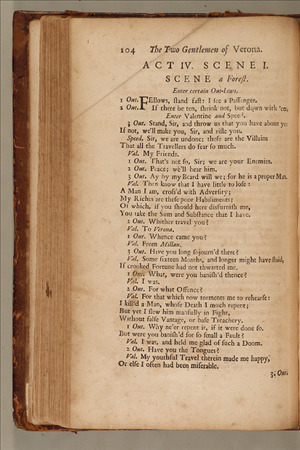 104 The Two Gentlemen of Verona.
ACT IV. SCENE I.
SCENE a Forest.
Enter certain Out-laws.
1 Out. Fellows, stand fast: I see a Passenger.
2 Out. If there be ten, shrink not, but down with 'em.
Enter Valentine and Speed.
3 Out. Stand, Sir, and throw us that you have about ye.
If not, we'll make you, Sir, and rifle you.
Speed. Sir, we are undone; these are the Villains
That all the Travellers do fear so much.
Val. My Friends.
1 Out. That's not so, Sir; we are your Enemies.
2 Out. Peace; we'll hear him.
3 Out. Ay by my Beard will we; for he is a proper Man.
Val. Then know that I have little to lose:
A Man I am, cross'd with Adversity;
My Riches are these poor Habiliments;
Of which, if you should here disfurnish me,
You take the Sum and Substance that I have.
2 Out. Whither travel you?
Val. To Verona.
1 Out. Whence came you?
Val. From Millan.
3 Out. Have you long sojourn'd there?
Val. Some sixteen Months, and longer might have staid,
If crooked Fortune had not thwarted me.
1 Out. What, were you banish'd thence?
Val. I was.
2 Out. For what Offence?
Val. For that which now torments me to rehearse:
I kill'd a Man, whose Death I much repent;
But yet I slew him manfully in Fight,
Without false Vantage, or base Treachery.
1 Out. Why ne'er repent it, if it were done so.
But were you banish'd for so small a Fault?
Val. I was, and held me glad of such a Doom.
2 Out. Have you the Tongues?
Val. My youthful Travel therein made me happy,
Or else I often had been miserable.
3. Out.